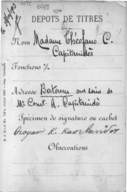 DEPOTS DE TITRES
Nom Madame Théofano C.
Capitanidès
Fonctions
Adresse Batoum aux soins de
Mr Const. A. Capitanidès
Spécimen de signature ou cachet
Observations